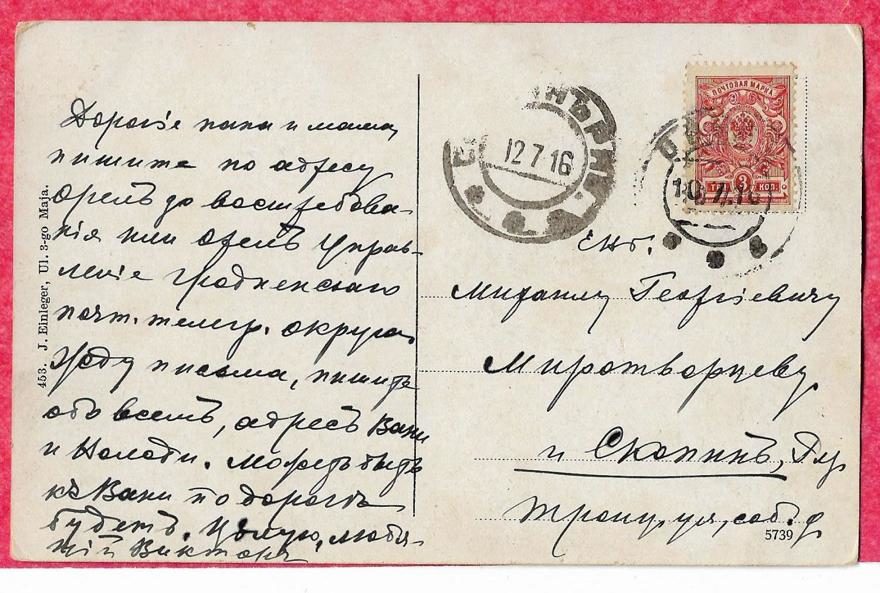 Дорогіе папа и мама,
пишите по адресу
Орелъ до востребова-
нія или Орелъ Управ-
леніе Гродненскаго
почт. телегр. округа
Жду письма, пишите
обо всемъ, адресъ Вани
и Володи. Можетъ быть
къ Вани по дорогѣ
будетъ. Цѣлую, любя-
щій Викторъ
453. J. Einleger, Ul. 3-go Maja.
ПОЧТОВАЯ МАРКА
ТРИ 3 КОП.
12 7 16
10.7.16
Михаилу Георгіевичу
Миротворцеву
Скопинъ,
Троиц. ул, соб. д
5739